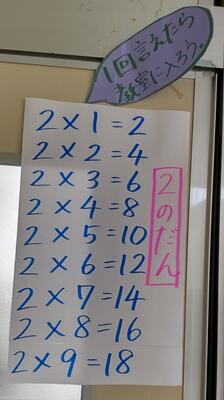 1回言えたら
教室に入ろう。
2×1=2
2×2=4
2×3=6
2×4=8
2×5=10
2×6=12
2×7=14
2×8=16
2×9=18
2のだん